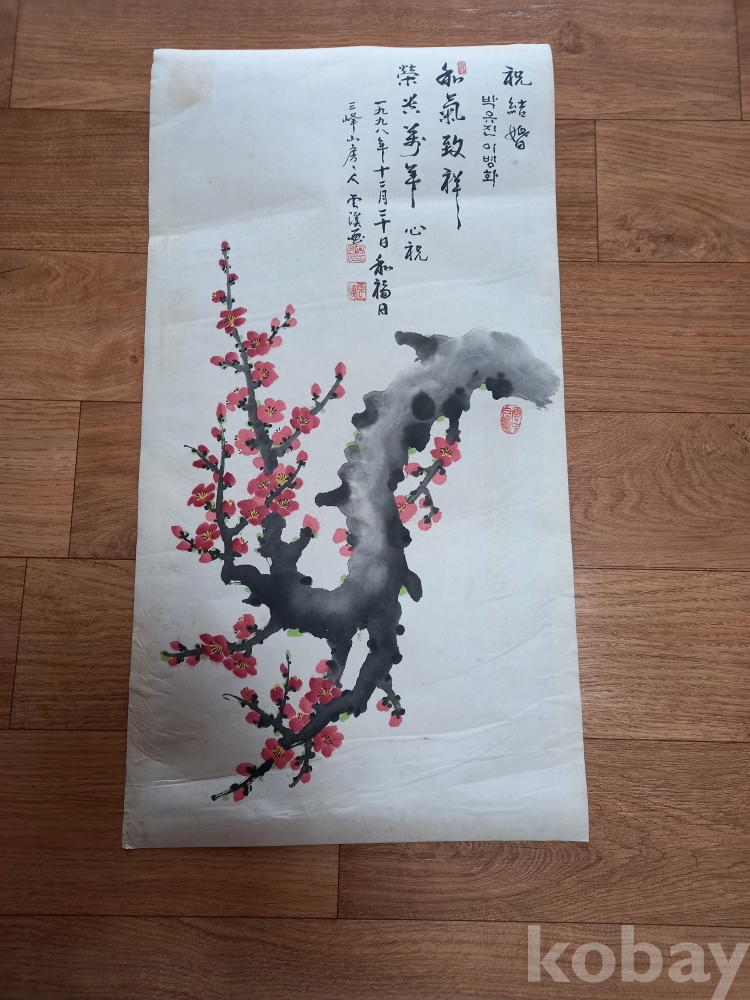 祝結婚
박유진 이병화
和氣致祥
榮共萬年 心祝
一九九八年十二月二十日 和福日
三峰山房人 雲溪畫
kobay